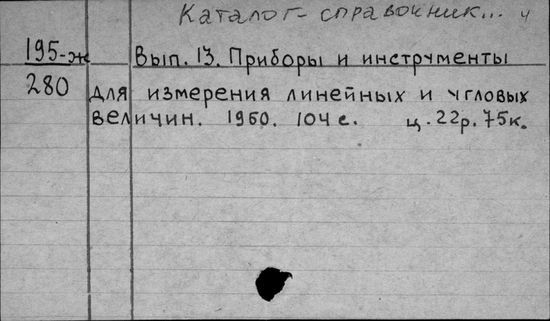 Каталог-справочник... ч
195-ж Вып. 13. Приборы и инструменты
280 для измерения линейных и угловых
величин. 1960. 104 с. ц. 22р. 75к.